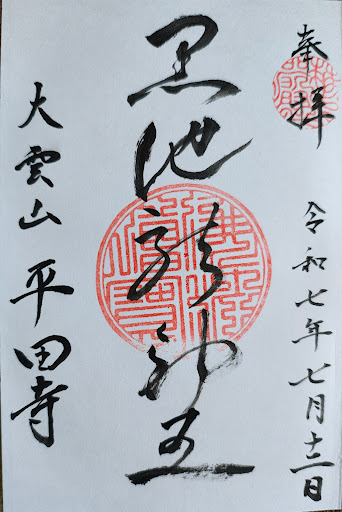 奉拝 令和七年七月十二日
黒池龍神王
大雲山 平田寺